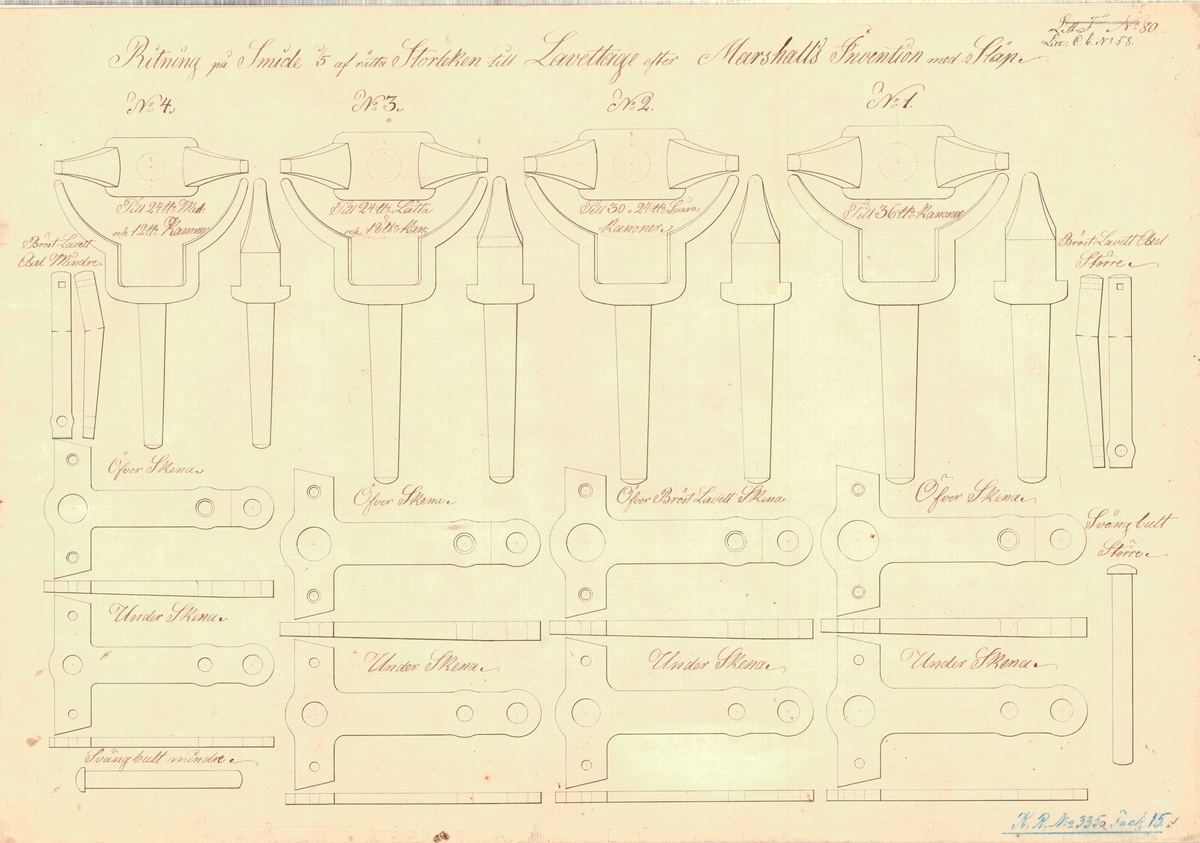 Litt. F. No 80.
Litt: C. b. No 58.
Ritning på Smide 1/5 af rätta Storleken till Lavettage efter Marshalls Invention med Släp.
No 4.
No 3.
No 2.
No 1.
Till 24 ttz Med:
och 12 ttz Kanoner
Till 24 ttz Lätta
och 18 ttz Kan:
Till 30 o 24 ttz Svåra
Kanoner.
Till 36 ttz Kanoner
Bröst-Lavett
Axel Mindre.
Bröst Lavett Axel
Större.
Öfver Skena.
Öfver Skena.
Öfver Bröst Lavett Skena
Öfver Skena.
Svängbult
Större.
Under Skena.
Under Skena.
Under Skena.
Under Skena.
Svängbult mindre.
K. R. No 335a Fack 15.